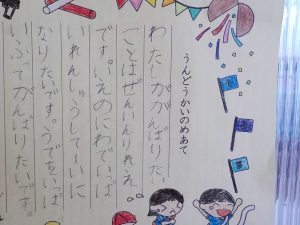 うんどうかいのめあて
わたしががんばりたい
ことはぜんいんりれえ。
です。いえのにわでいっぱ
いれんしゅうしていちいに
なりたいです。うでをいっぱ
いふってがんばりたいです。